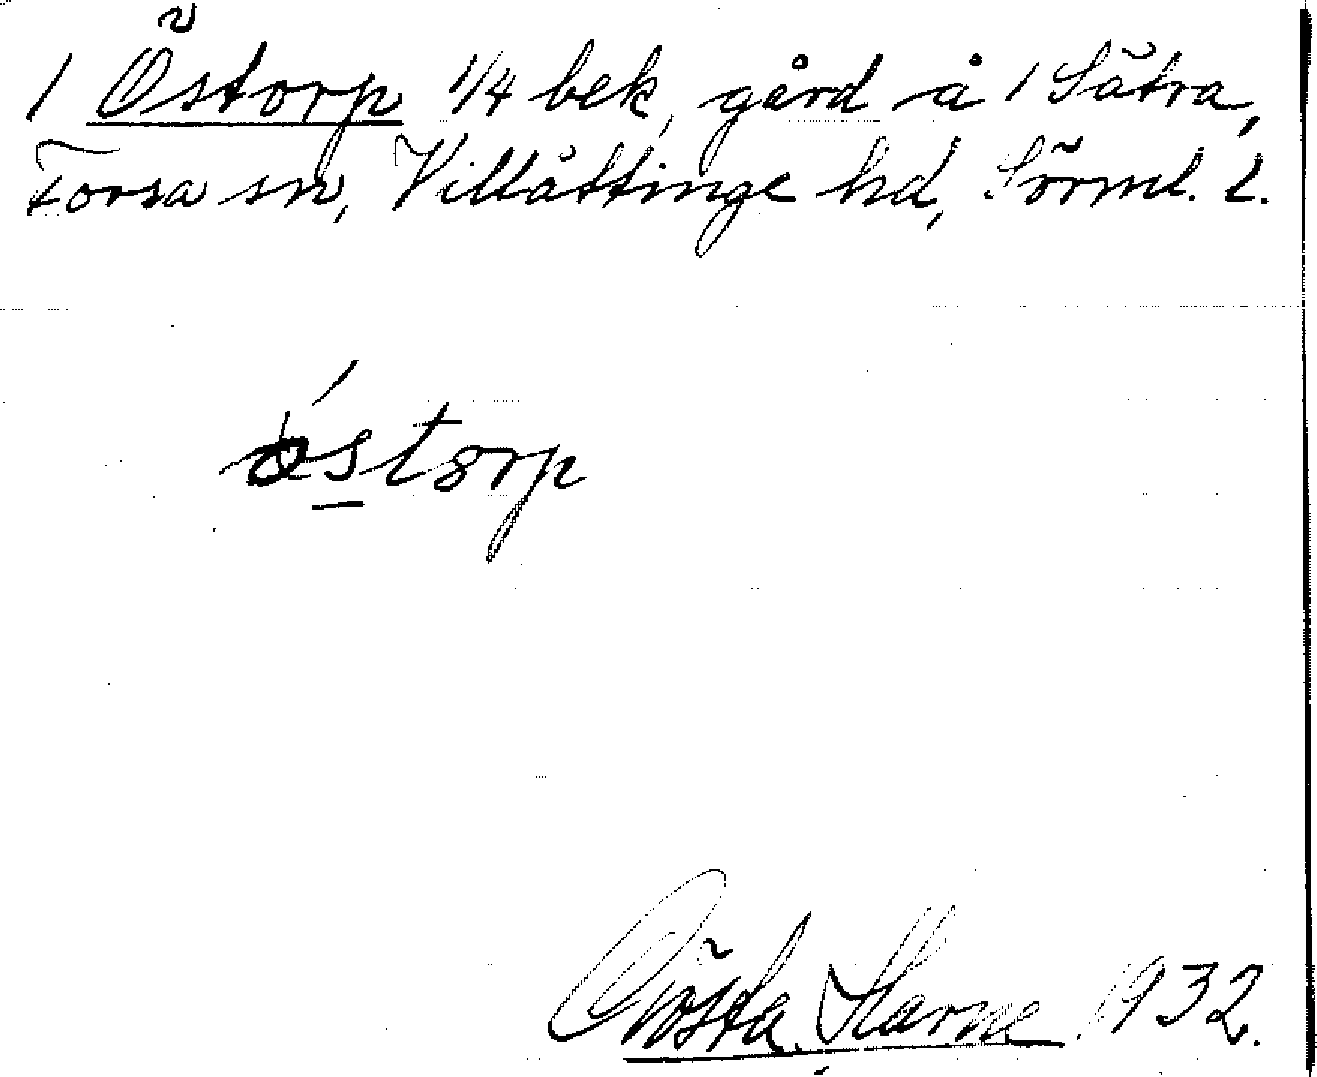 1 Östorp 1/4 bek, gård å 1 Sätra,
Forsa sn, Villåttinge hd, Sörml. l.
östorp
Gösta 1932.